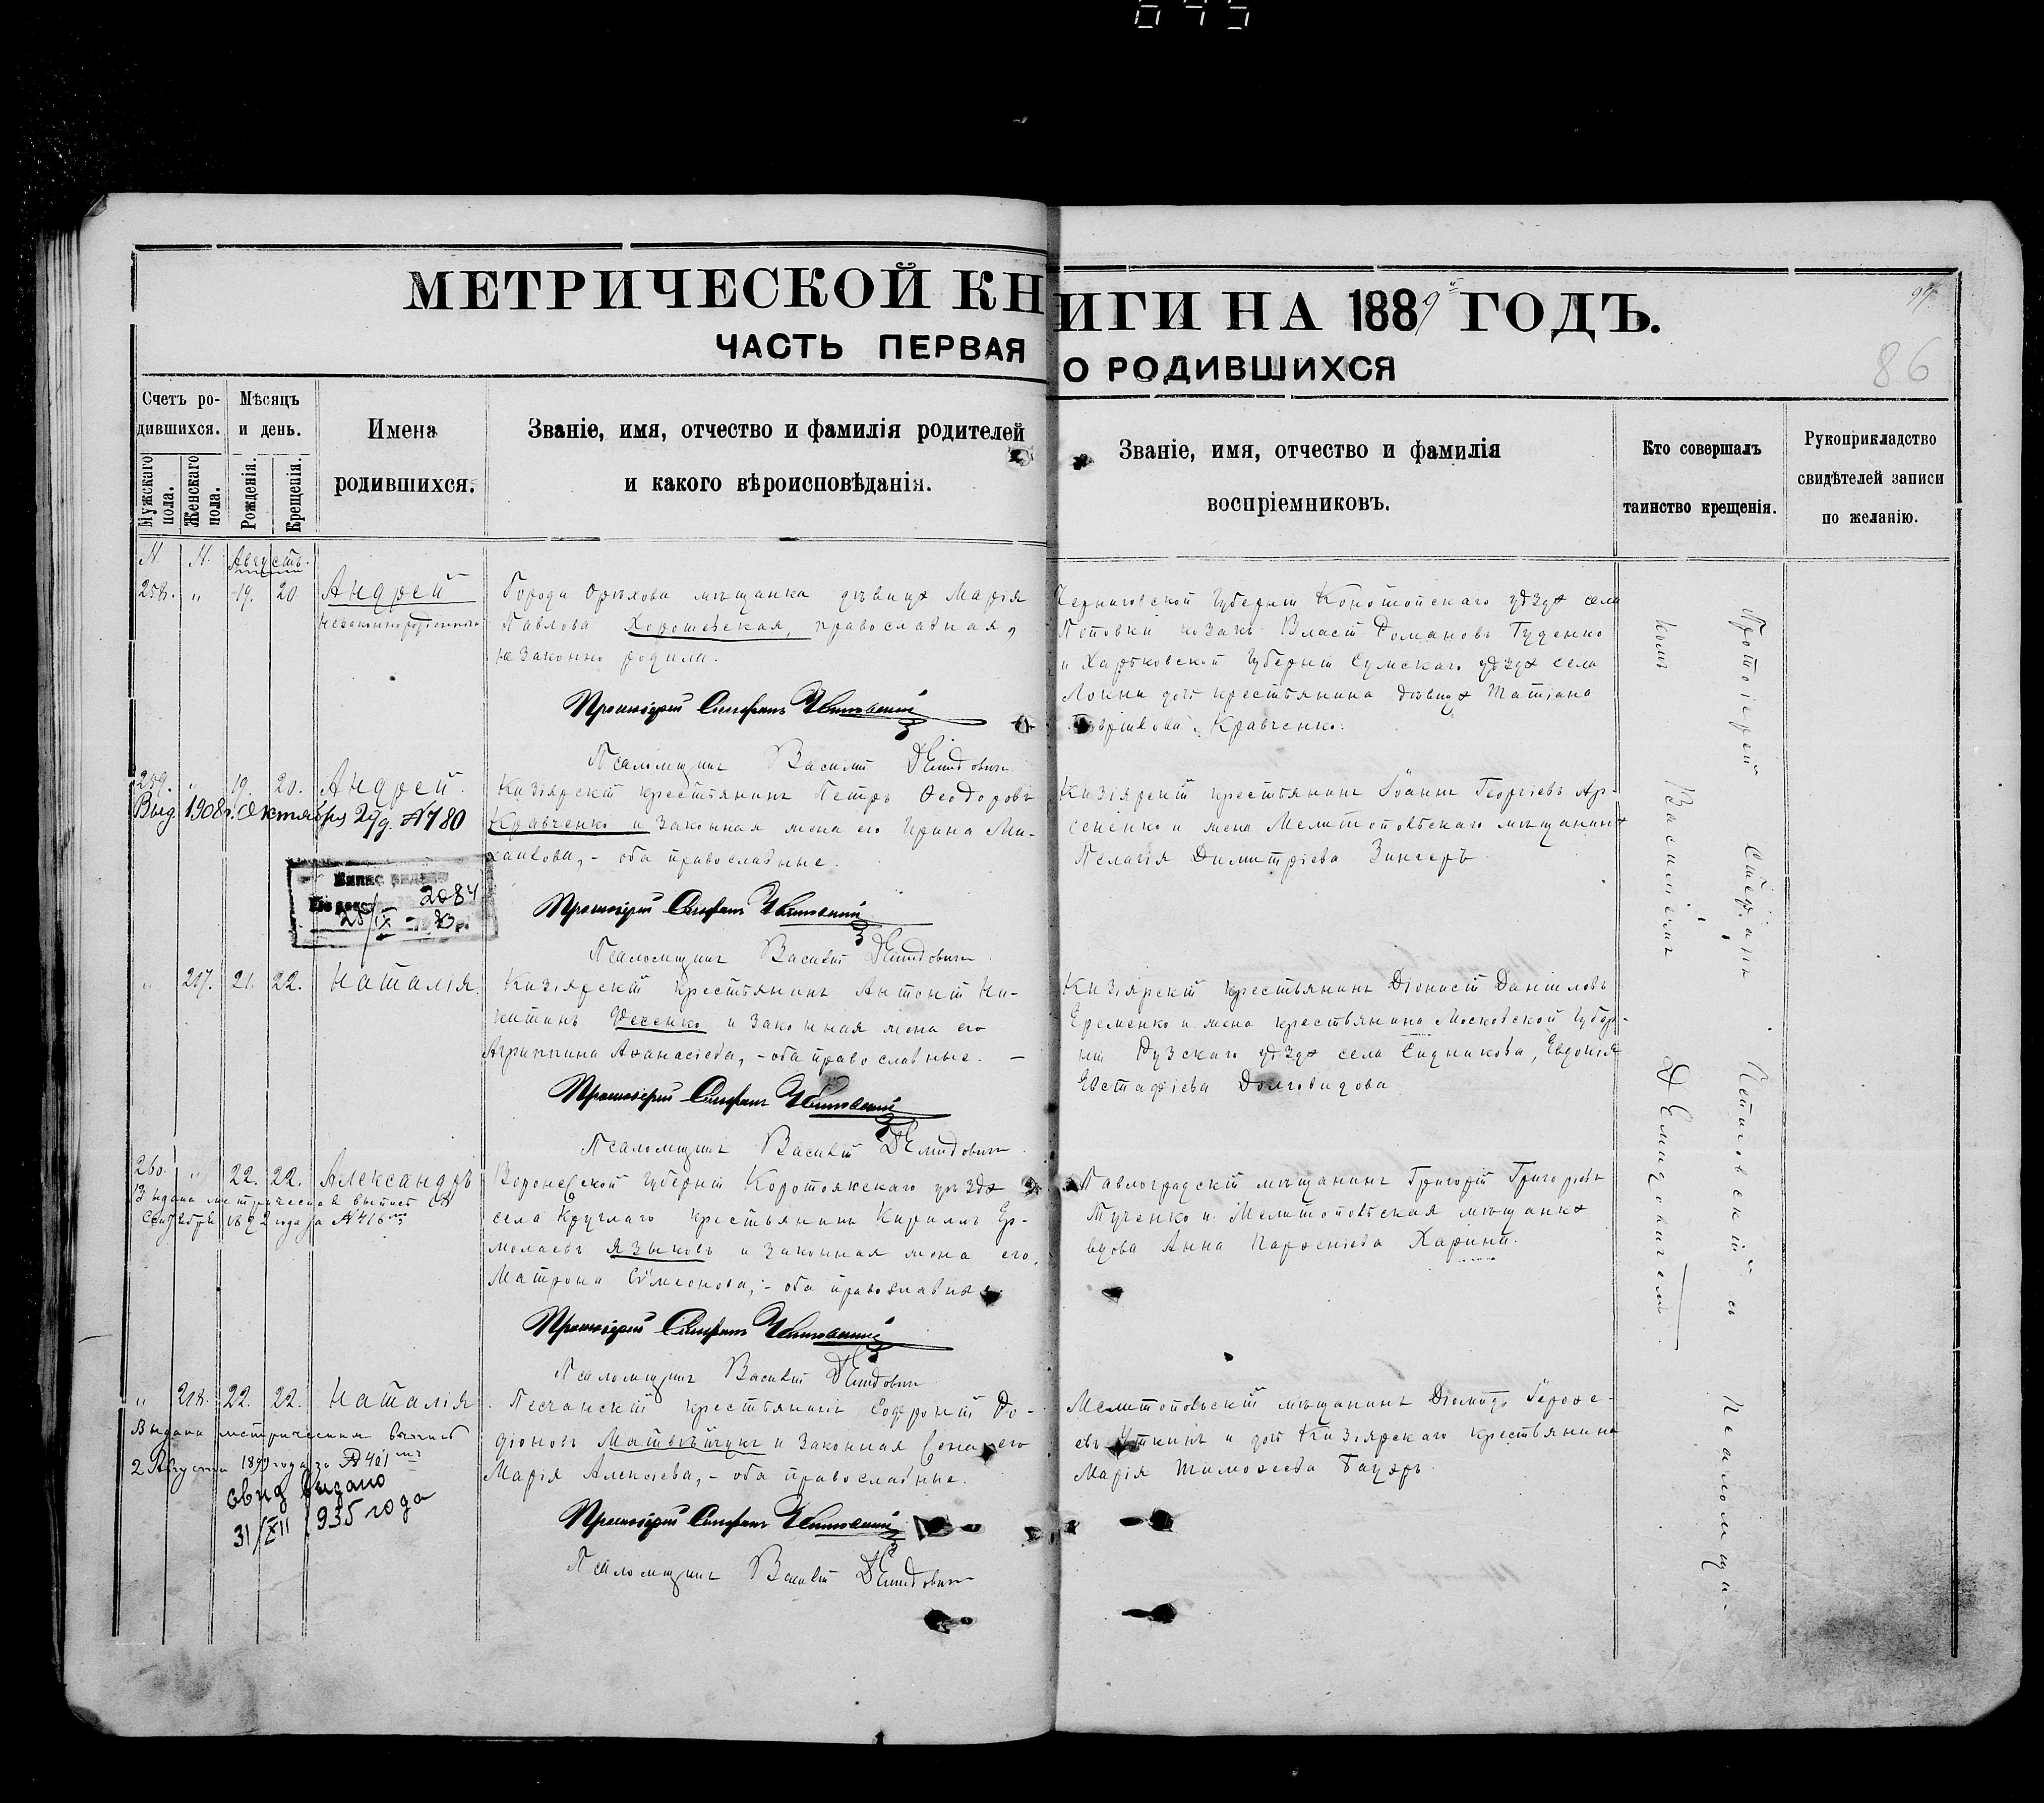 МЕТРИЧЕСКОЙ КНИГИ НА 1889й ГОДЪ.
ЧАСТЬ ПЕРВАЯ О РОДИВШИХСЯ
86
Счетъ ро-
дившихся.
Мужскаго пола.
Женскаго пола.
Мѣсяцъ
и день.
Рожденія.
Крещенія.
Имена
родившихся.
Званіе, имя, отчество и фамилія родителей
и какого вѣроисповѣданія.
Званіе, имя, отчество и фамилія
воспріемниковъ.
Кто совершалъ
таинство крещенія.
Рукоприкладство
свидѣтелей записи
по желанію.
М. М. Августъ.
258. " 19. 20 Андрей
незаконнорожденный
Города Орѣхова мѣщанка дѣвица Марія
Павлова Хорошевская, православная,
незаконно родила.
Протоіерей Стефанъ
Псаломщикъ Василій Демидовичъ
Черниговской Губерніи Конотопскаго уѣзда села
Поповки козакъ Власій Романовъ Гуденко
и Харьковской Губерніи Сумскаго уѣзда села
Локни дочь крестьянина дѣвица Татіана
Гавріилова Кравченко.
259. " 19. 20. Андрей.
Выд. 1908 г. Октября 29 д. №780
2084
Кизіярскій крестьянинъ Петръ Ѳеодоровъ
Кравченко и законная жена его Ирина Ми-
хаилова, - оба православные.
Протоіерей Стефанъ
Псаломщикъ Василій Демидовичъ
Кизіярскій крестьянинъ Іоаннъ Георгіевъ Ар-
сененко и жена Мелитопольскаго мѣщанина
Пелагія Димитріева Зингеръ
" 217. 21. 22. Наталія.
Кизіярскій крестьянинъ Антоній Ни-
китинъ Фесенко и законная жена его
Агриппина Аѳанасіева, - оба православные. -
Протоіерей Стефанъ
Псаломщикъ Василій Демидовичъ
Кизіярскій крестьянинъ Діонисій Даніиловъ
Еременко и жена крестьянина Московской Губер-
ніи Рузскаго уѣзда села Сидникова, Евдокія
Евстафіева Долговидова
260. " 22. 22. Александръ
Выдана метрическая выпись
Сентября 1892 года за №416
Воронежской Губерніи Коротоякскаго уѣзда
села Круглаго крестьянинъ Кириллъ Ер-
молаевъ Языковъ и законная жена его,
Матрона Сѵмеонова, - оба православные.
Протоіерей Стефанъ
Псаломщикъ Василій Демидовичъ
Павлоградскій мѣщанинъ Григорій Григоріевъ
Тученко и Мелитопольская мѣщанка
вдова Анна Парѳеніева Харина.
" 218. 22. 22. Наталія
Выдана метрическая выпись
2 Августа 1899 года за №401
свид выдано
31/XII 1935 года
Песчанскій крестьянинъ Софроній Ро-
діоновъ Матвѣйчукъ и законная жена его
Марія Алексіева, - оба православные.
Протоіерей Стефанъ
Псаломщикъ Василій Демидовичъ
Мелитопольскій мѣщанинъ Діомидъ Іероѳе-
евъ Уткинъ и дочь Кизіярскаго крестьянина
Марія Тимоѳеева Бауэръ.
Протоіерей Стефанъ съ Псаломщи-
комъ Василіемъ Демидовичемъ